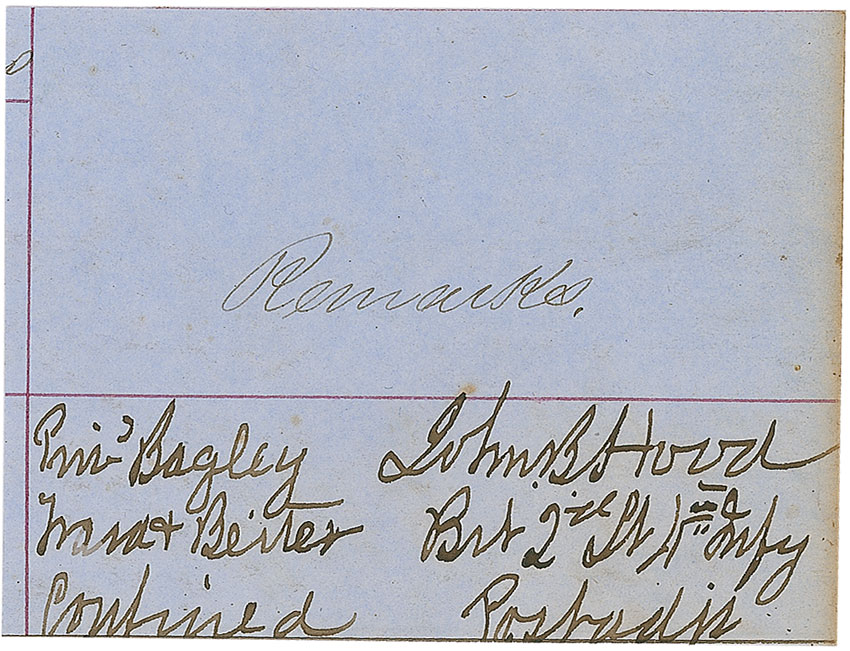 Remarks.
Privs Bagley
Ward & Beiter
Confined
John. B Hood
Bvt 2nd Lt 4th Infy
Post adjt